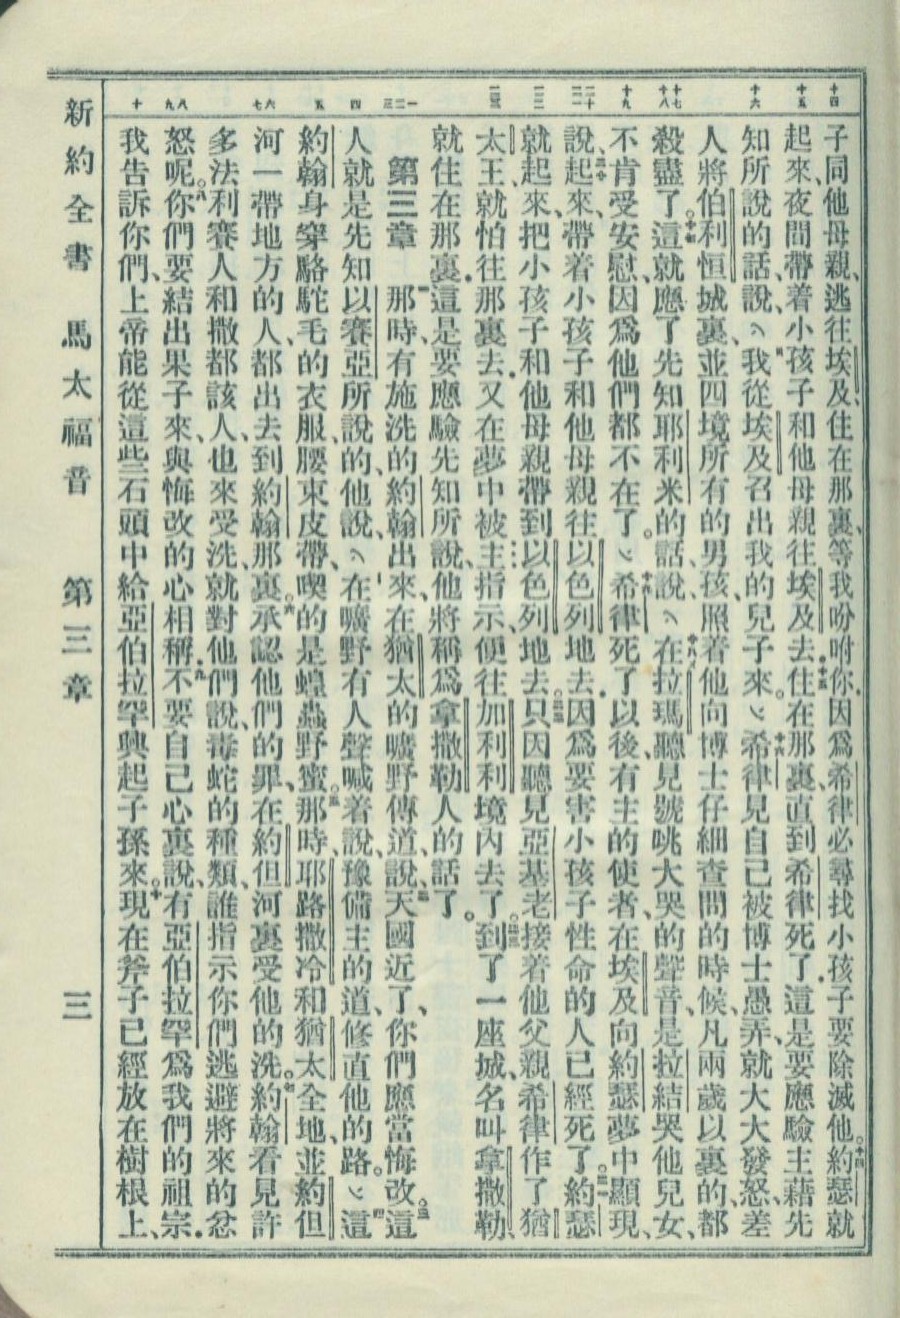 子同他母親、逃往埃及、住在那裏、等我吩咐你、因爲希律必尋找小孩子要除滅他。約瑟就
起來、夜間帶着小孩子和他母親往埃及去、住在那裏、直到希律死了、這是要應驗主藉先
知所說的話、說、我從埃及召出我的兒子來。希律見自己被博士愚弄、就大大發怒、差
人將伯利恒城裏、並四境所有的男孩、照着他向博士仔細查問的時候、凡兩歲以裏的、都
殺盡了。這就應了先知耶利米的話、說、在拉瑪聽見號咷大哭的聲音、是拉結哭他兒女、
不肯受安慰、因爲他們都不在了。希律死了以後、有主的使者、在埃及向約瑟夢中顯現、
說、起來、帶着小孩子和他母親往以色列地去、因爲要害小孩子性命的人已經死了。約瑟
就起來、把小孩子和他母親帶到以色列地去。只因聽見亞基老接着他父親希律作了猶
太王、就怕往那裏去、又在夢中被主指示、便往加利利境內去了。到了一座城、名叫拿撒勒、
就住在那裏、這是要應驗先知所說、他將稱爲拿撒勒人的話了。
第三章 那時、有施洗的約翰出來、在猶太的曠野傳道、說、天國近了、你們應當悔改。這
人就是先知以賽亞所說的、他說、在曠野有人聲喊着說、豫備主的道、修直他的路。這
約翰身穿駱駝毛的衣服、腰束皮帶、喫的是蝗蟲野蜜。那時、耶路撒冷和猶太全地、並約但
河一帶地方的人、都出去到約翰那裏。承認他們的罪、在約但河裏受他的洗。約翰看見許
多法利賽人和撒都該人、也來受洗、就對他們說、毒蛇的種類、誰指示你們逃避將來的忿
怒呢。你們要結出果子來、與悔改的心相稱。不要自己心裏說、有亞伯拉罕爲我們的祖宗。
我告訴你們、上帝能從這些石頭中給亞伯拉罕興起子孫來。現在斧子已經放在樹根上、
新約全書 馬太福音 第三章 三